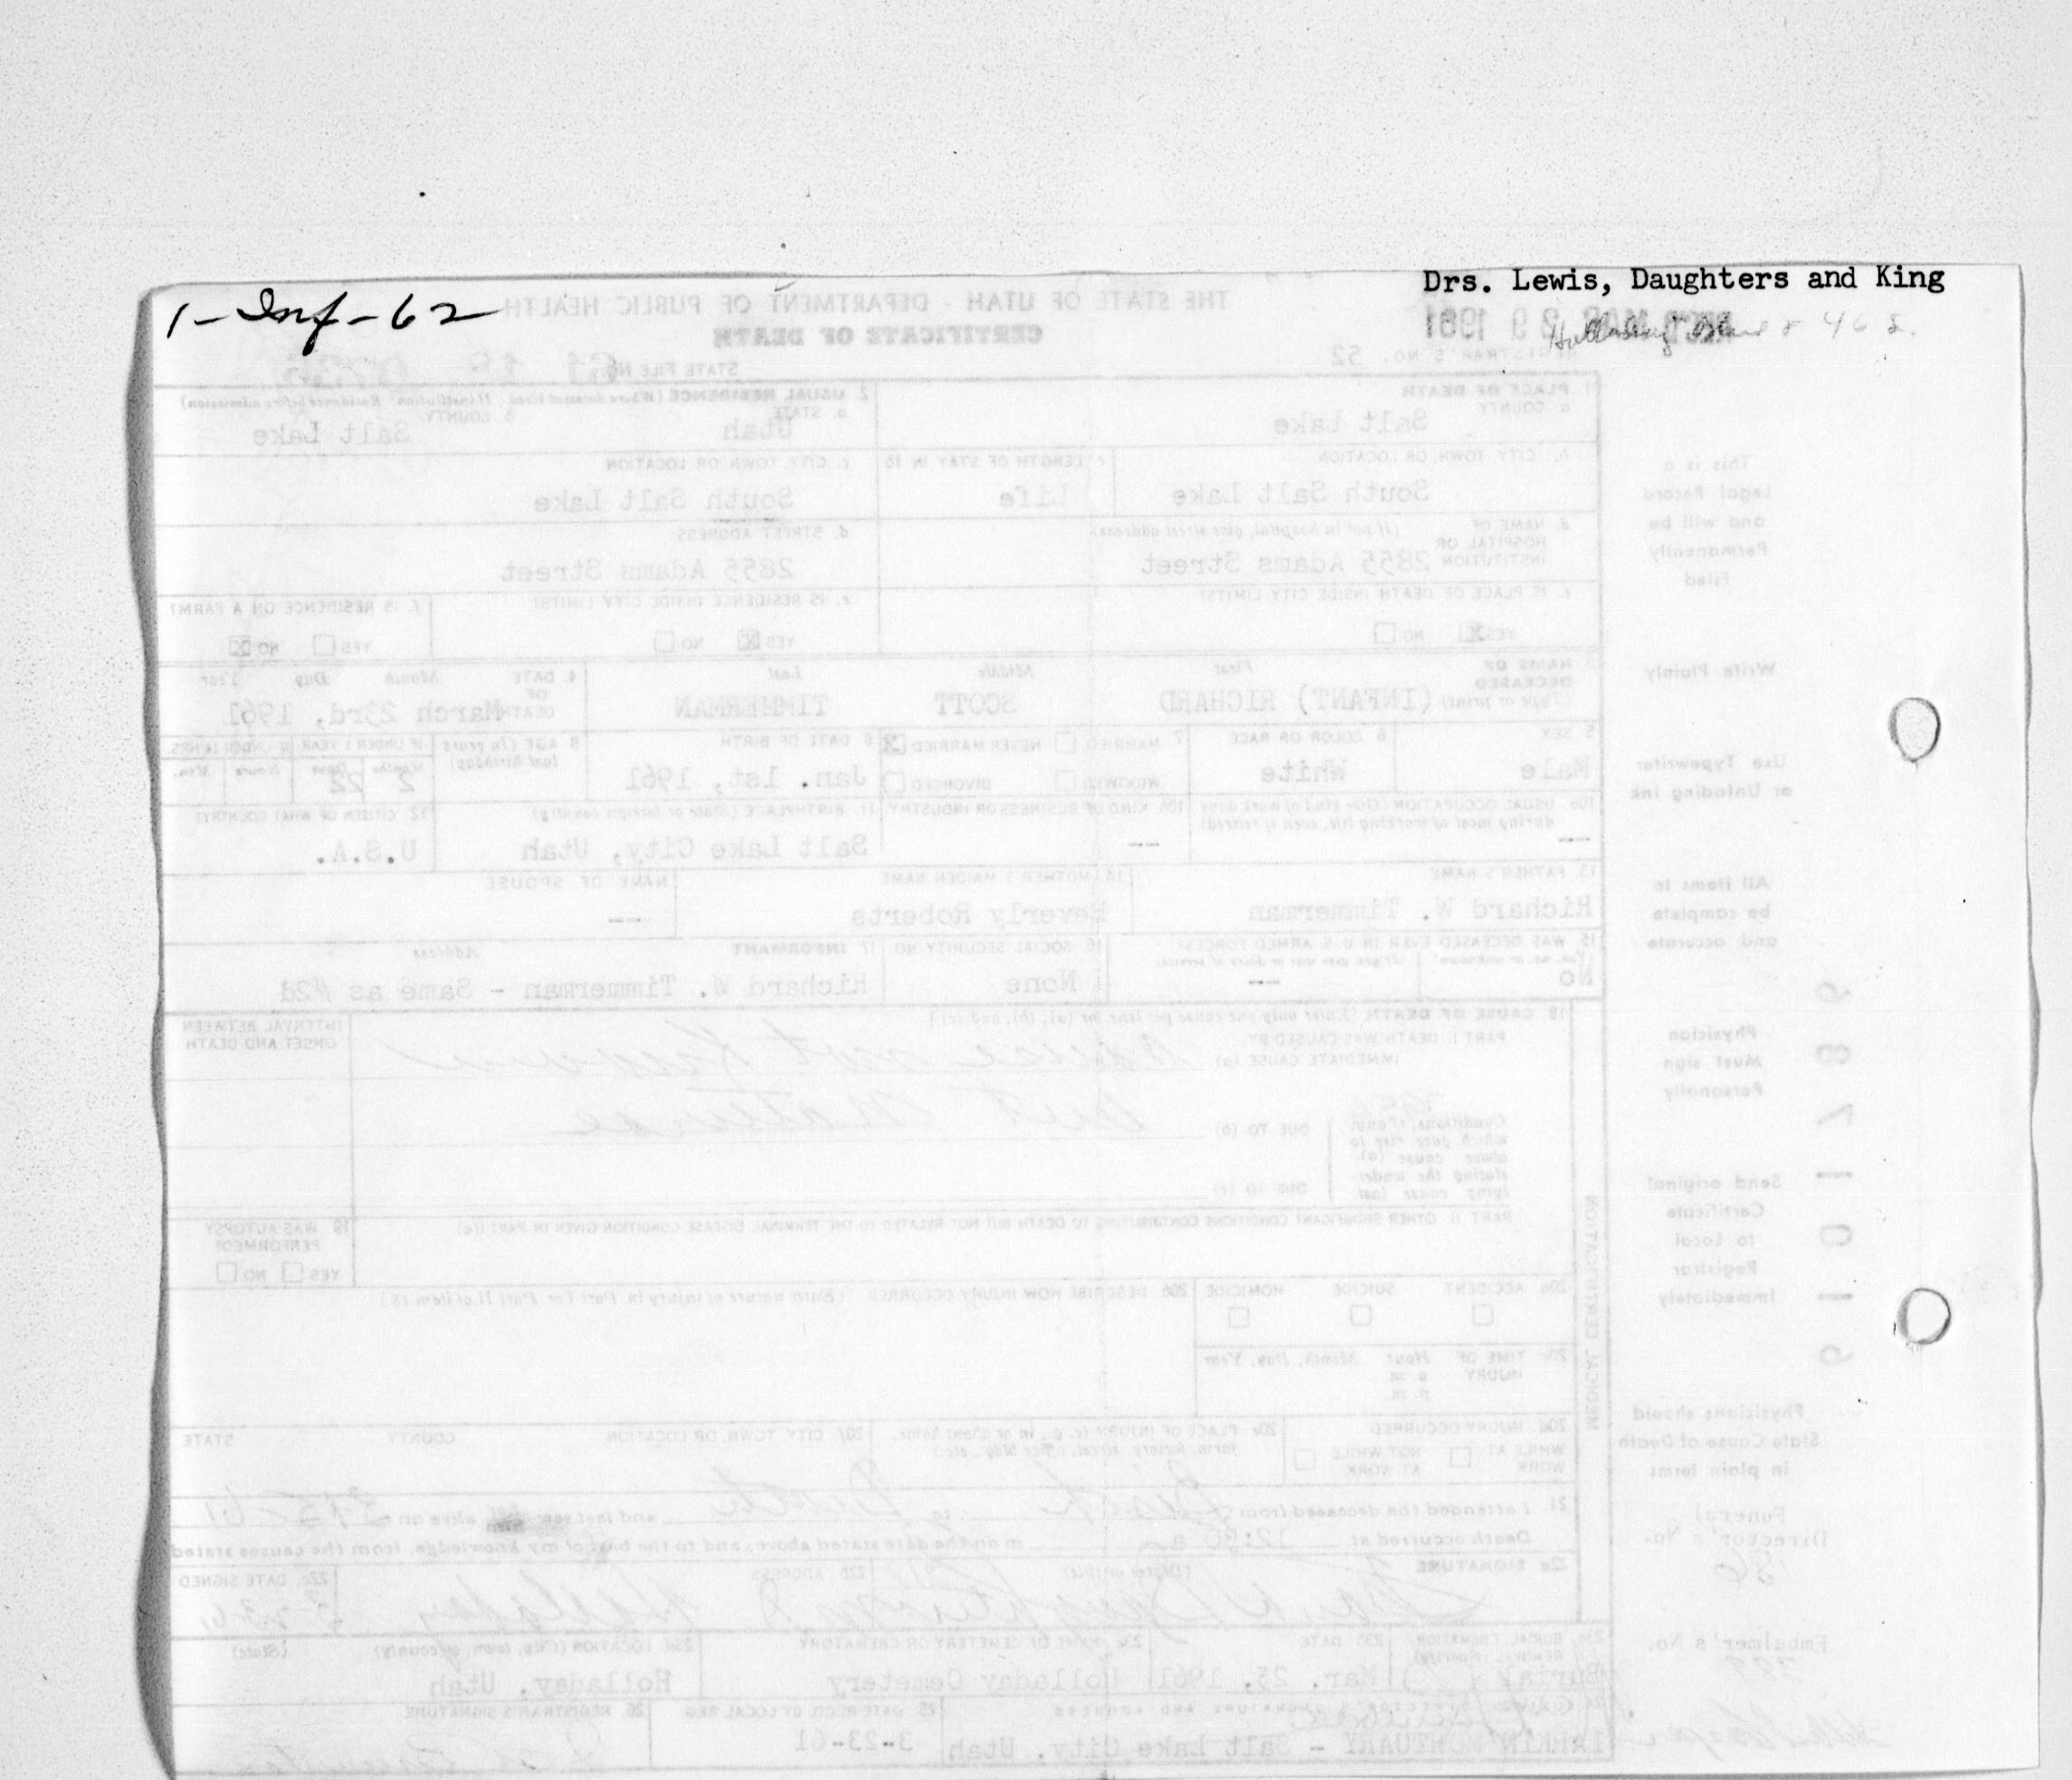 Drs. Lewis, Daughters and King
1-Inf-62
THE STATE OF UTAH - DEPARTMENT OF PUBLIC HEALTH
CERTIFICATE OF DEATH
REC'D MAR 29 1961
REGISTRAR'S NO. 52
STATE FILE NO. 61 18
1 PLACE OF DEATH
a COUNTY
Salt Lake
2. USUAL RESIDENCE (Where deceased lived. If institution: Residence before admission)
a. STATE
Utah
b. COUNTY
Salt Lake
b. CITY TOWN, OR LOCATION
South Salt Lake
c LENGTH OF STAY IN 1b
Life
c. CITY, TOWN, OR LOCATION
South Salt Lake
d. NAME OF HOSPITAL OR INSTITUTION
(If not in hospital, give street address)
2855 Adams Street
d. STREET ADDRESS
2855 Adams Street
e. IS PLACE OF DEATH INSIDE CITY LIMITS?
YES NO
e. IS RESIDENCE INSIDE CITY LIMITS?
YES NO
f. IS RESIDENCE ON A FARM?
YES NO
3 NAME OF DECEASED
(Type or print)
First Middle Last
(INFANT) RICHARD SCOTT TIMMERMAN
4. DATE OF DEATH
Month Day Year
March 23rd, 1961
5 SEX
Male
6 COLOR OR RACE
White
7 MARRIED NEVER MARRIED
WIDOWED DIVORCED
8 DATE OF BIRTH
Jan. 1st, 1961
9 AGE (In years last birthday)
IF UNDER 1 YEAR IF UNDER 24 HRS.
Months Days Hours Min.
2 22
10a. USUAL OCCUPATION (Give kind of work done during most of working life, even if retired)
--
10b KIND OF BUSINESS OR INDUSTRY
--
11. BIRTHPLACE (State or foreign country)
Salt Lake City, Utah
12 CITIZEN OF WHAT COUNTRY?
U.S.A.
13 FATHER'S NAME
Richard W. Timmerman
14 MOTHER'S MAIDEN NAME
Beverly Roberts
NAME OF SPOUSE
--
15 WAS DECEASED EVER IN U.S. ARMED FORCES?
(Yes, no, or unknown) (If yes, give war or dates of service)
No --
16 SOCIAL SECURITY NO
None
17 INFORMANT Address
Richard W. Timmerman - Same as #2d
18 CAUSE OF DEATH [Enter only one cause per line for (a), (b), and (c)]
PART I DEATH WAS CAUSED BY
IMMEDIATE CAUSE (a) Cause not known
INTERVAL BETWEEN ONSET AND DEATH
Conditions, if any, which gave rise to above cause (a), stating the underlying cause last
DUE TO (b) but natural
DUE TO (c)
PART II OTHER SIGNIFICANT CONDITIONS CONTRIBUTING TO DEATH BUT NOT RELATED TO THE TERMINAL DISEASE CONDITION GIVEN IN PART I(a)
19 WAS AUTOPSY PERFORMED?
YES NO
MEDICAL CERTIFICATION
20a ACCIDENT SUICIDE HOMICIDE
20b DESCRIBE HOW INJURY OCCURRED (Enter nature of injury in Part I or Part II of item 18)
20c TIME OF INJURY Hour Month, Day, Year
a. m.
p. m.
20d INJURY OCCURRED
WHILE AT WORK NOT WHILE AT WORK
20e PLACE OF INJURY (e.g., in or about home, farm, factory, street, office bldg., etc.)
20f CITY TOWN OR LOCATION COUNTY STATE
21 I attended the deceased from Birth to Death and last saw him alive on
Death occurred at 12:30 a m on the date stated above; and to the best of my knowledge, from the causes stated
22a SIGNATURE (Degree or title)
22b ADDRESS
Holladay
22c. DATE SIGNED
23a BURIAL, CREMATION, REMOVAL (Specify)
Burial
23b DATE
Mar. 25, 1961
23c NAME OF CEMETERY OR CREMATORY
Holladay Cemetery
23d LOCATION (City, town, or county) (State)
Holladay, Utah
24 FUNERAL DIRECTOR'S SIGNATURE AND ADDRESS
LARKIN MORTUARY - Salt Lake City, Utah
25 DATE RECD. BY LOCAL REG
3-23-61
26 REGISTRAR'S SIGNATURE
This is a Legal Record and will be Permanently Filed
Write Plainly
Use Typewriter or Unfading Ink
All items to be complete and accurate
Physician Must sign Personally
Send original Certificate to Local Registrar Immediately
Physicians should State Cause of Death in plain terms
Funeral Director's No.
Embalmer's No.